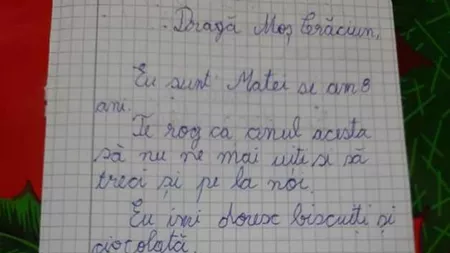 Dragă Moș Crăciun,
Eu sunt Matei si am 8
ani.
Te rog ca anul acesta
să nu ne mai uiti si să
treci și pe la noi.
Eu imi doresc biscuiti și
ciocolată.